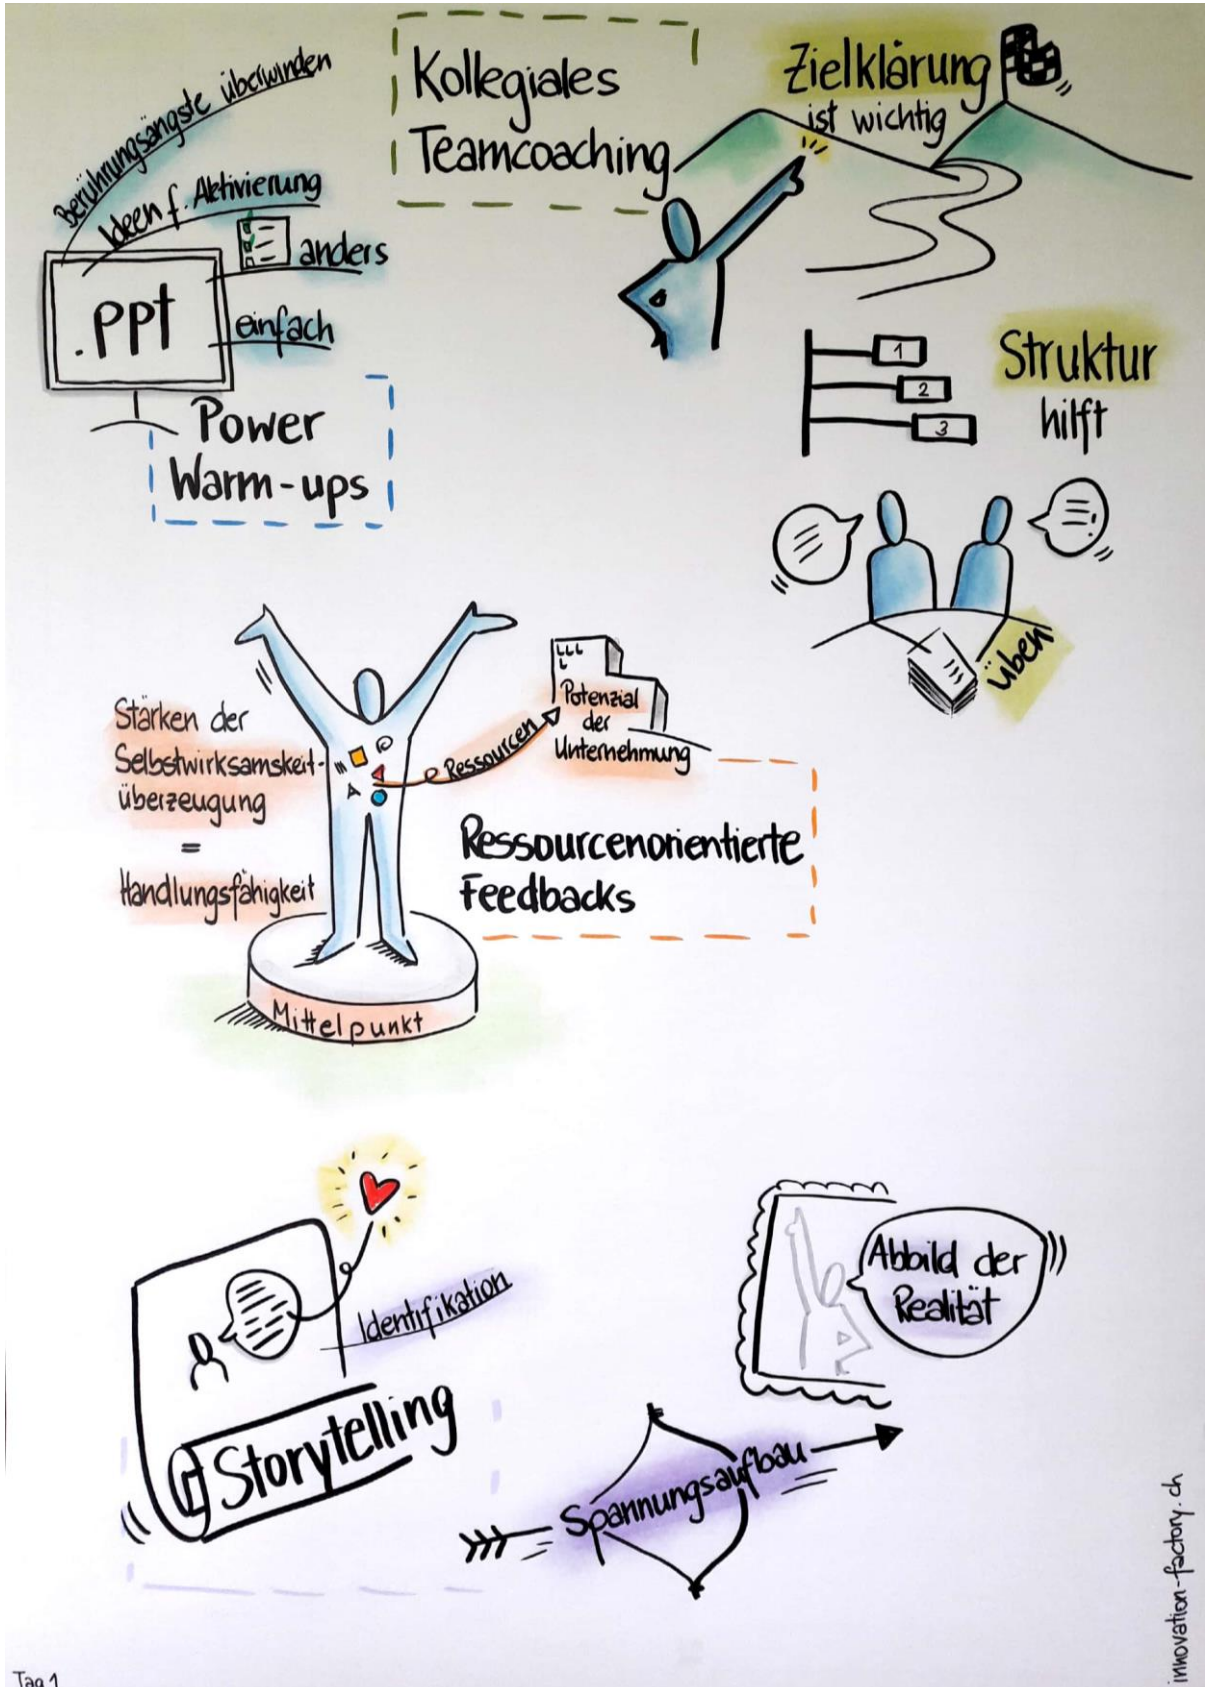 Berührungsängste überwinden
Ideen f. Aktivierung
anders
.ppt
einfach
Power
Warm-ups
Kollegiales
Teamcoaching
Zielklärung
ist wichtig
1
2
3
Struktur
hilft
üben
Stärken der
Selbstwirksamskeit-
überzeugung
=
Handlungsfähigkeit
Ressourcen
Potenzial
der
Unternehmung
Ressourcenorientierte
Feedbacks
Mittelpunkt
Identifikation
Storytelling
Abbild der
Realität
Spannungsaufbau
innovation-factory.ch
Tag 1